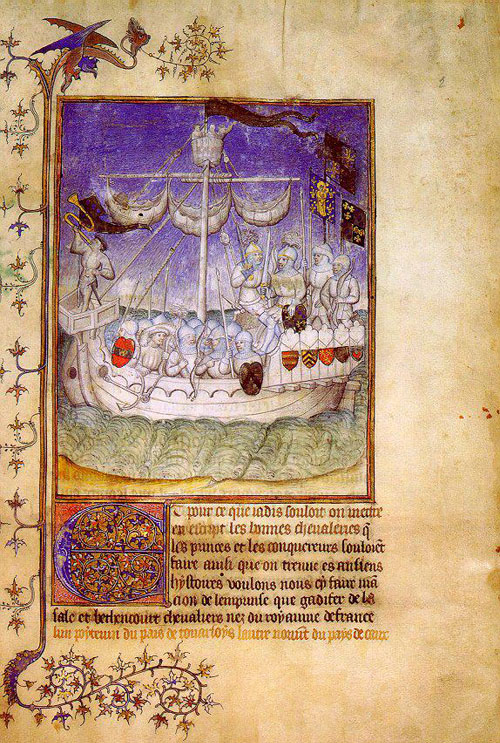 ET pour ce que iadis souloit on mectre
en escript les bonnes chevaleries q̄
les princes et les conquereurs souloiēt
faire ainsi que on treuve es ansiens
hystoires voulons nous cy faire mā
cion de lemprinse que gadifer de la
sale et bethencourt chevaliers nez du royaume defrance
lun poytevin du pais de touarsoys lautre normāt du pays de caux